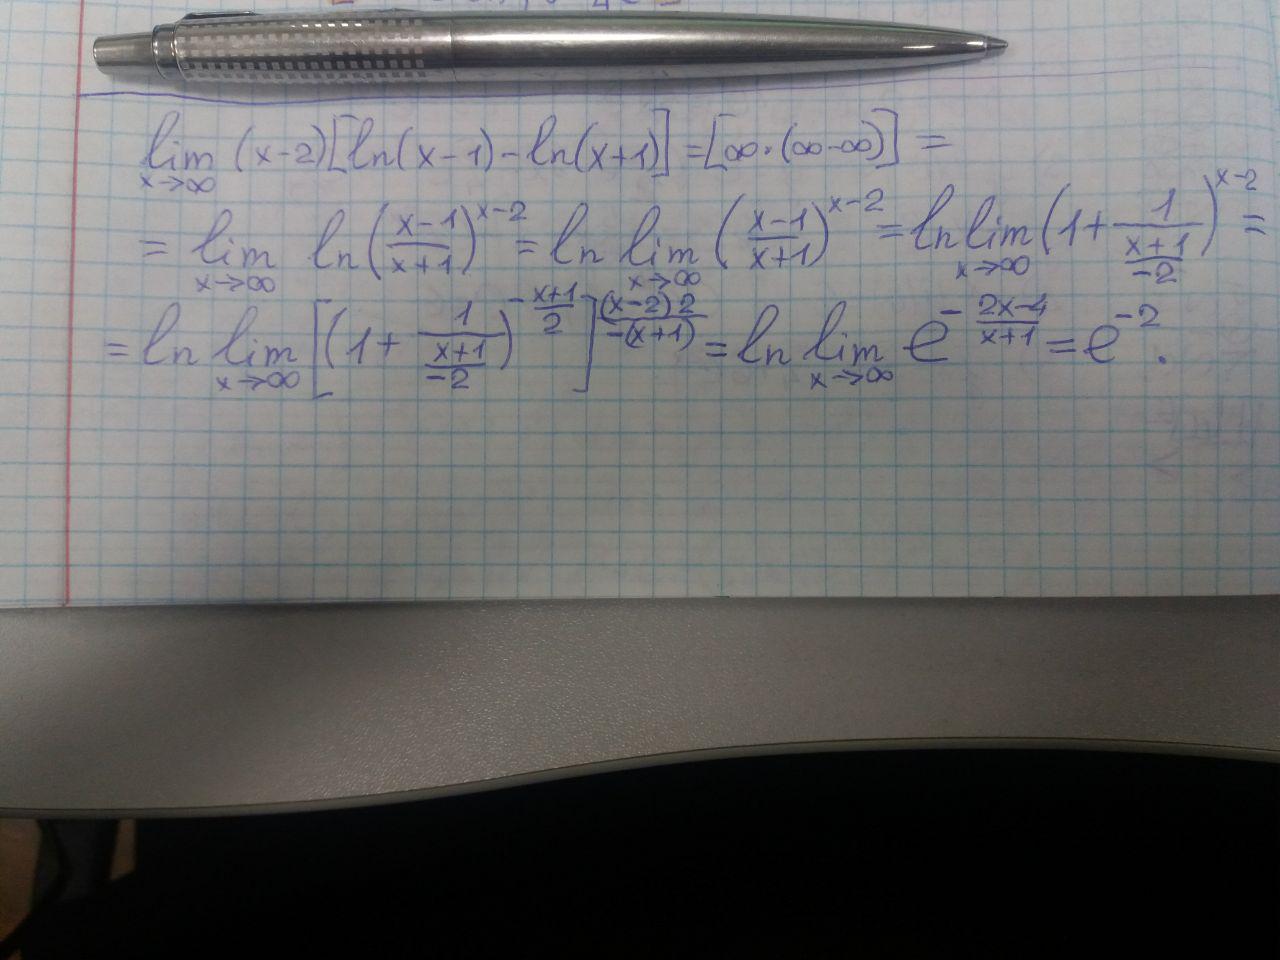 lim x→∞ (x-2)[ln(x-1)-ln(x+1)] = [∞·(∞-∞)] =
= lim x→∞ ln((x-1)/(x+1))^(x-2) = ln lim x→∞ ((x-1)/(x+1))^(x-2) = ln lim x→∞ (1+1/((x+1)/-2))^(x-2) =
= ln lim x→∞ [(1+1/((x+1)/-2))^(-(x+1)/2)]^((x-2)2/-(x+1)) = ln lim x→∞ e^(-(2x-4)/(x+1)) = e^(-2).